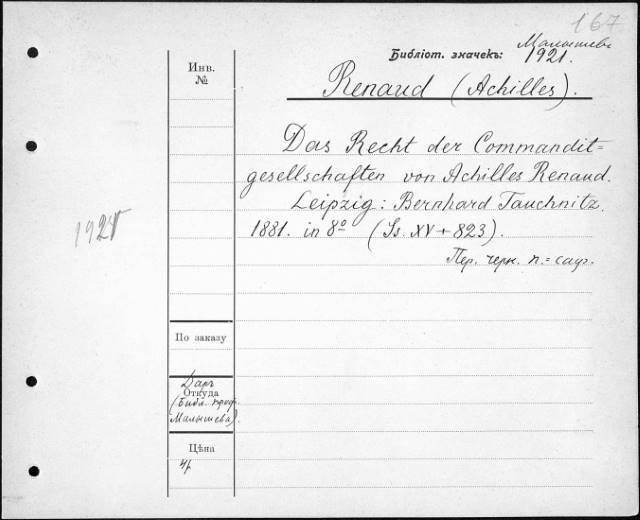 167
Малышева
Библіот. значекъ: 1921.
Инв.
№
Renaud (Achilles).
Das Recht der Commandit=
gesellschaften von Achilles Renaud.
Leipzig: Bernhard Tauchnitz.
1881. in 8º (Ss. XV + 823).
Пер. черн. п.=
1921
По заказу
Даръ
Откуда
(Библ. проф.
Малышева).
Цѣна